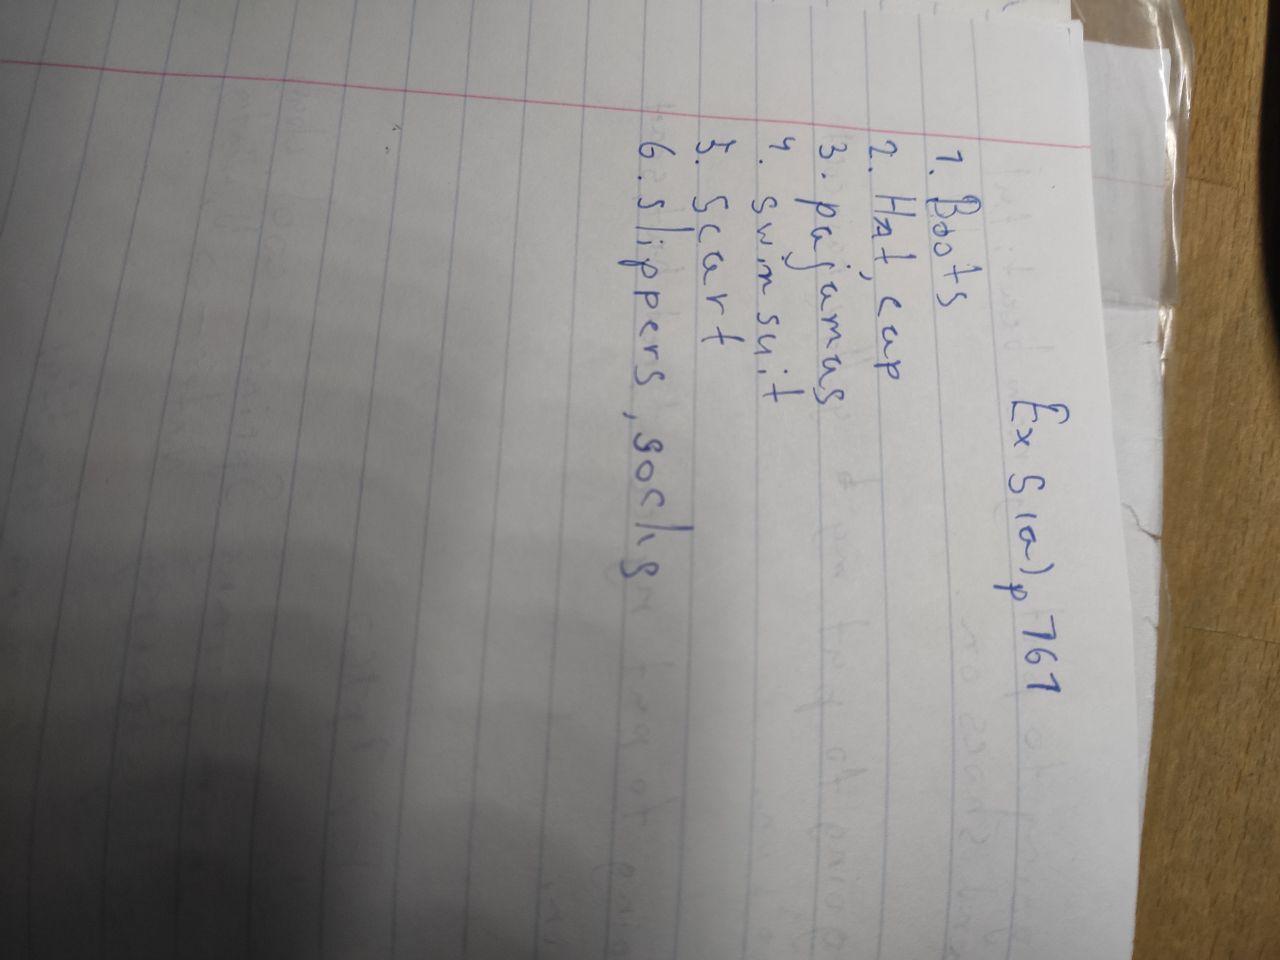 Ex 5(a) p 161
1. Boots
2. Hat, cap
3. pajamas
4. swimsuit
5. scarf
6. slippers, socks